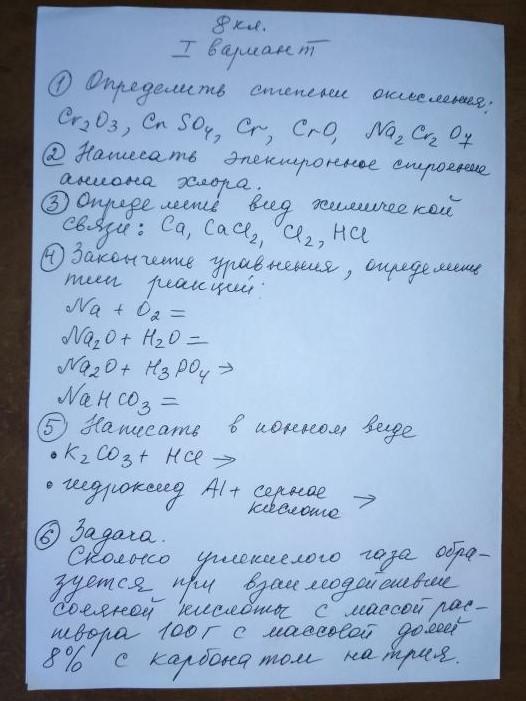 8 кл.
I вариант
① Определить степени окисления:
Cr2O3, CrSO4, Cr, CrO, Na2Cr2O7
② Написать электронное строение
аниона хлора.
③ Определить вид химической
связи: Ca, CaCl2, Cl2, HCl
④ Закончить уравнения, определить
тип реакций:
Na + O2 =
Na2O + H2O =
Na2O + H3PO4 →
NaHCO3 =
⑤ Написать в ионном виде
• K2CO3 + HCl →
• гидроксид Al + серная
кислота →
⑥ Задача.
Сколько углекислого газа обра-
зуется при взаимодействие
соляной кислоты с массой рас-
твора 100г с массовой долей
8% с карбонатом натрия.